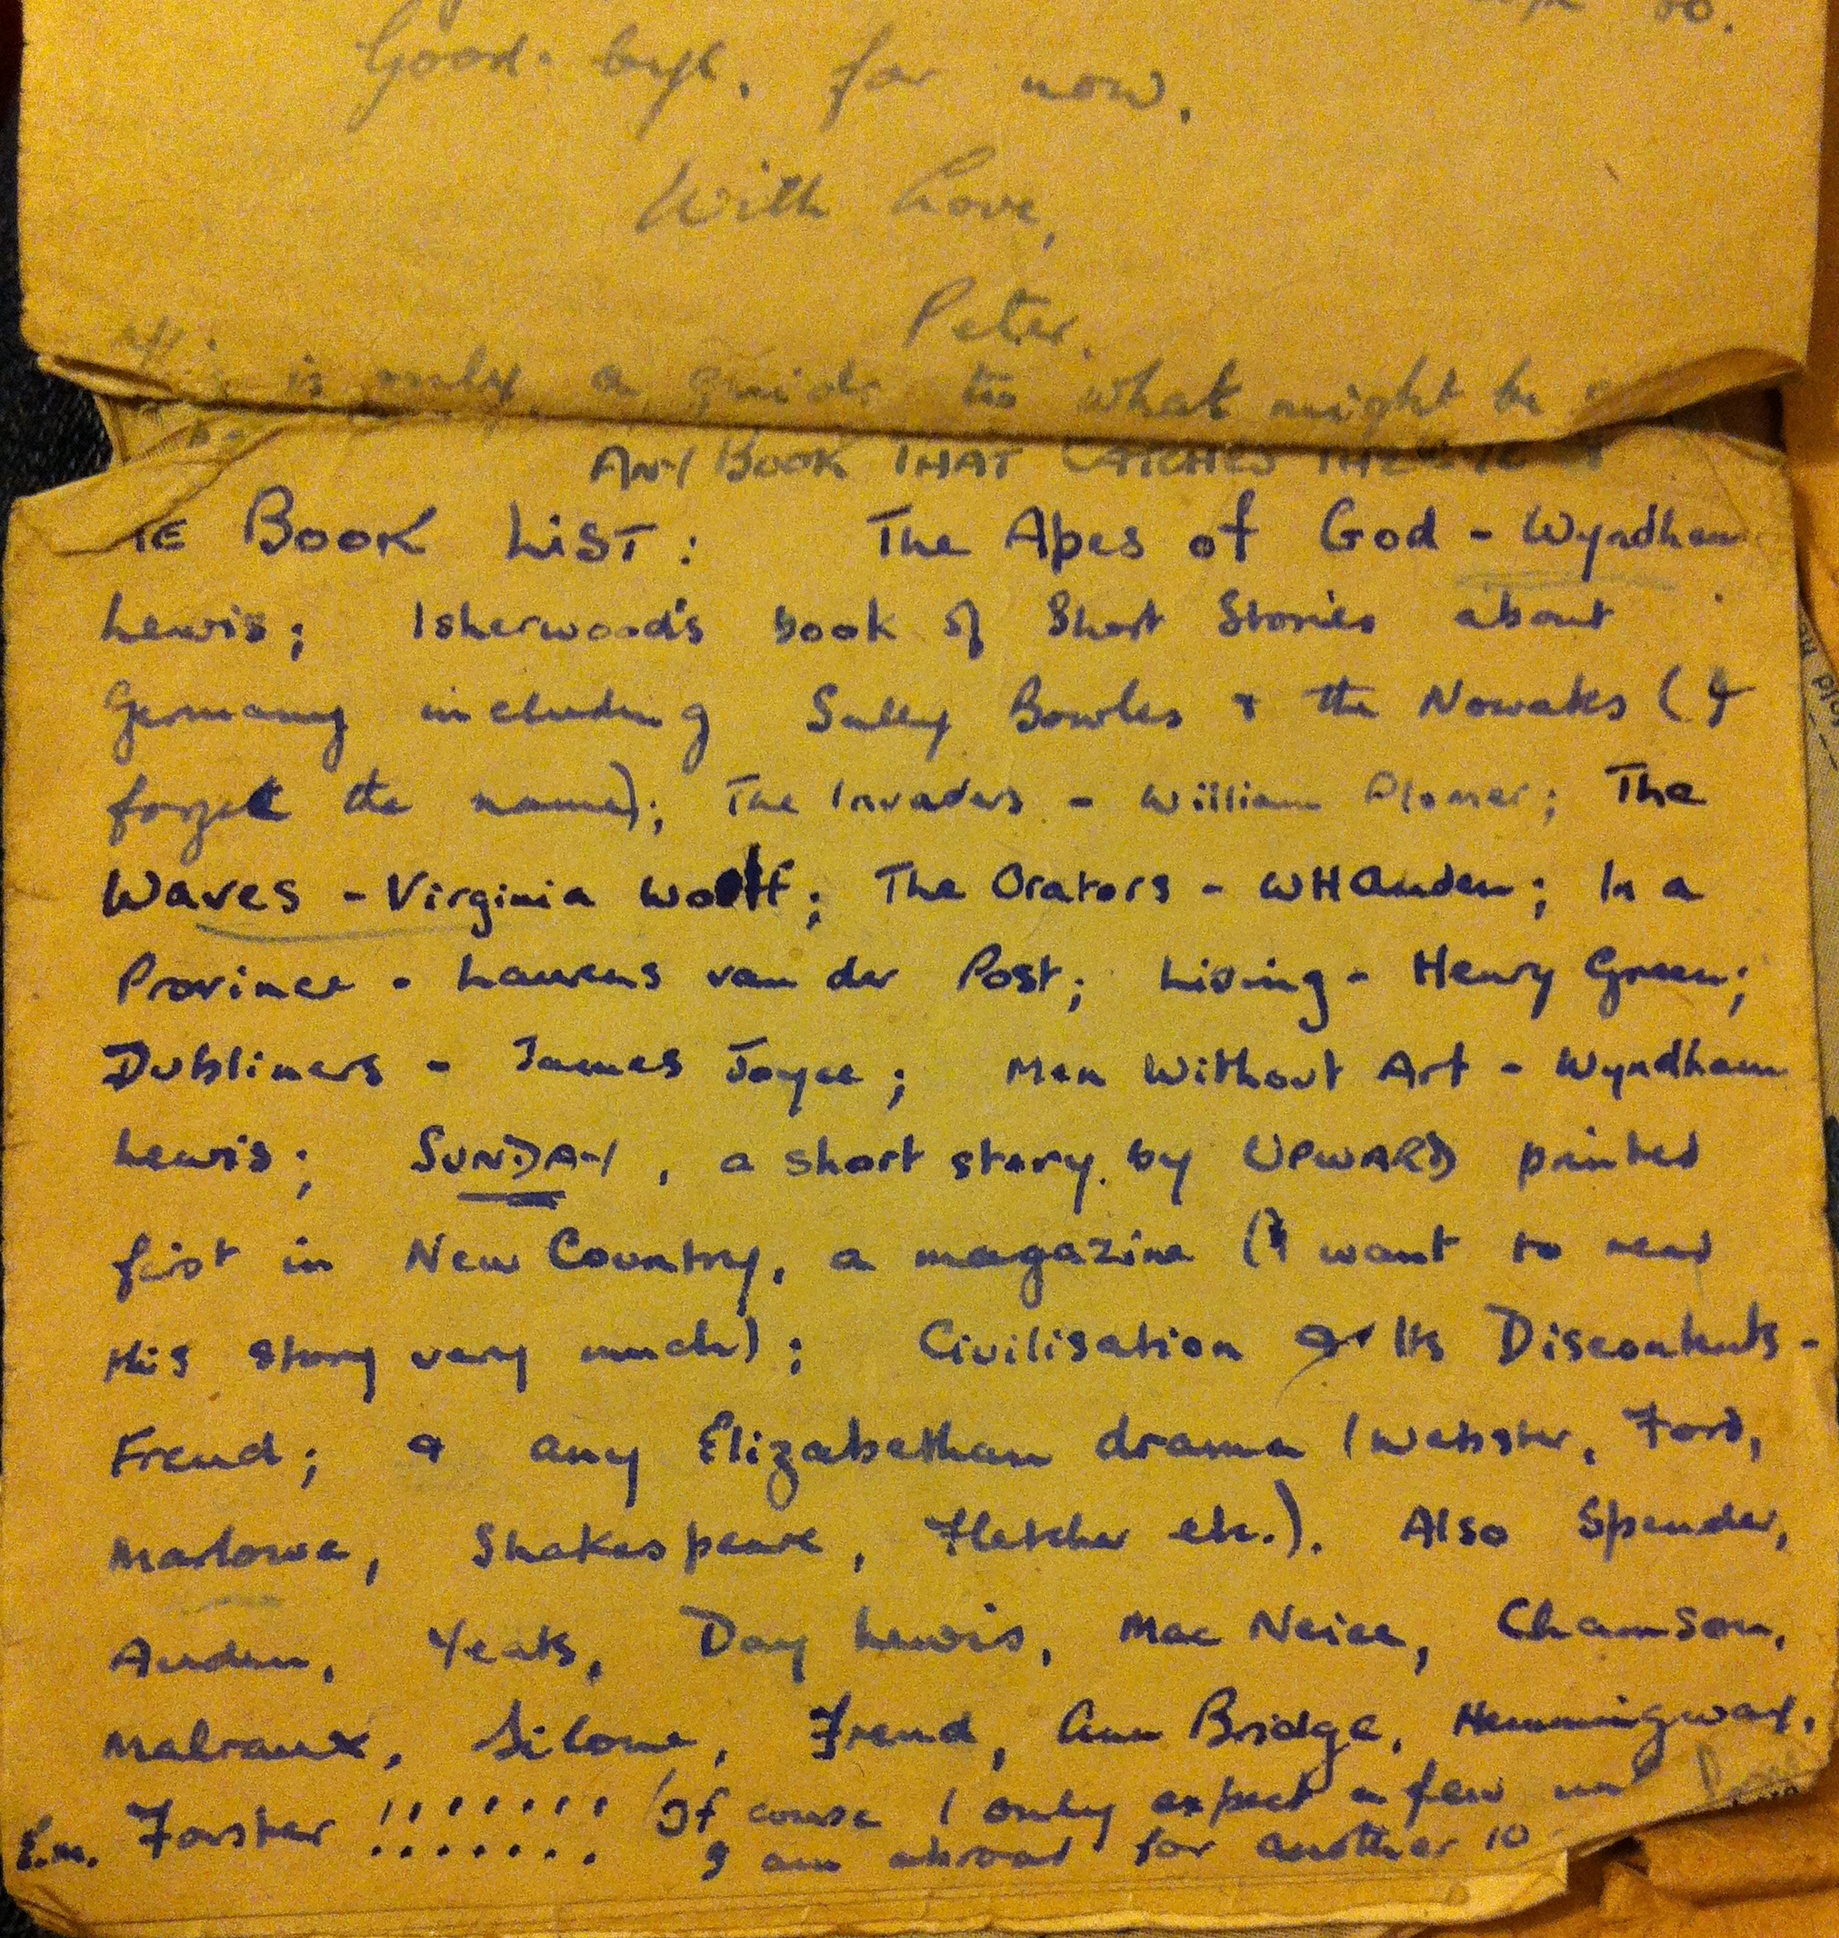 so.
Good-bye, for now.
With Love,
Peter.
is only a guide to what might be
ANY BOOK THAT CATCHES THE
BOOK LIST: The Apes of God - Wyndham
Lewis; Isherwood's book of Short Stories about
Germany including Sally Bowles & the Nowaks (I
forget the name); The Invaders - William Plomer; The
Waves - Virginia Woolf; The Orators - WH Auden; In a
Province - Laurens van der Post; Living - Henry Green;
Dubliners - James Joyce; Men Without Art - Wyndham
Lewis; SUNDAY, a short story by UPWARD printed
first in New Country, a magazine (I want to read
this story very much); Civilisation & Its Discontents -
Freud; & any Elizabethan drama (Webster, Ford,
Marlowe, Shakespeare, Fletcher etc.). Also Spender,
Auden, Yeats, Day Lewis, Mac Neice, Chamson,
Malraux, Silone, Freud, Ann Bridge, Hemmingway,
E.M. Forster !!!!!!! (Of course I only expect a few
I am abroad for another 10